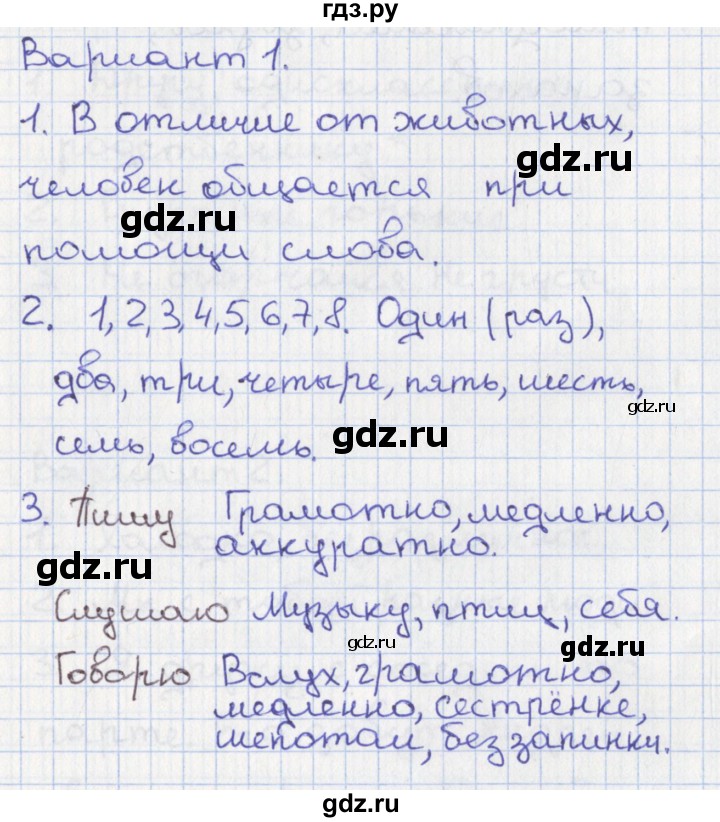 гдз.ру
Вариант 1.
1. В отличие от животных,
gdz.ru
человек общается при
gdz.ru
помощи слова.
2. 1, 2, 3, 4, 5, 6, 7, 8. Один (раз),
два, три, четыре, пять, шесть,
gdz.ru
семь, восемь.
gdz.ru
3. Пишу Грамотно, медленно,
аккуратно.
gdz.ru
Слушаю Музыку, птиц, себя.
gdz.ru
gdz.ru
Говорю Вслух, грамотно,
медленно, сестрёнке,
шепотом, без запинки.
gdz.ru